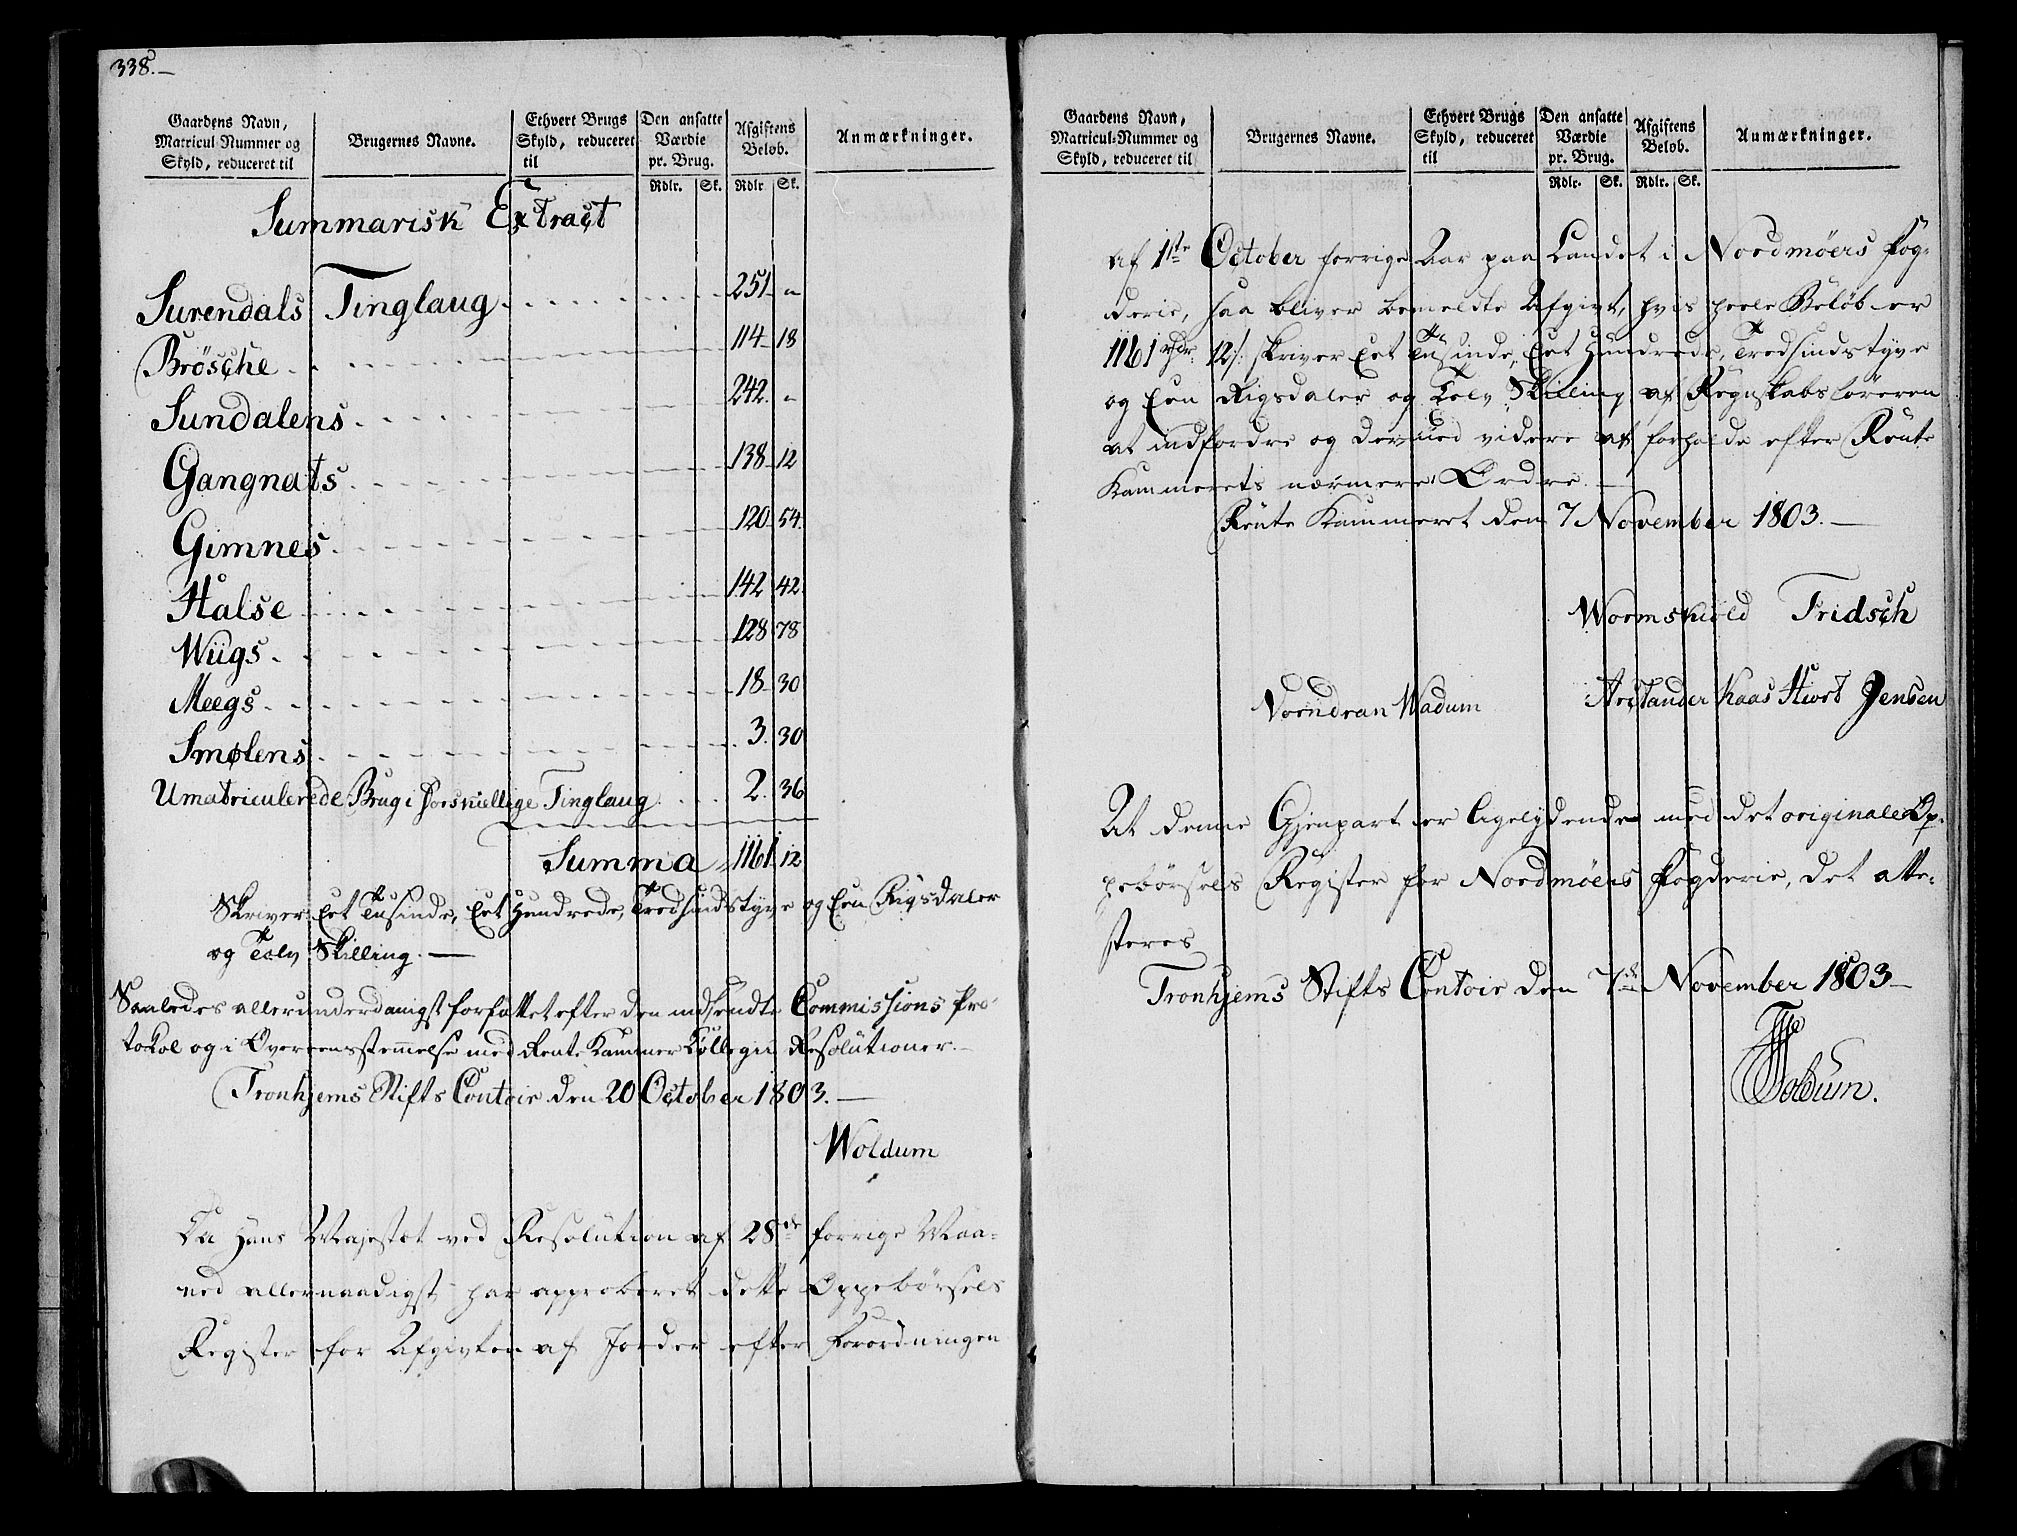 338.
Gaardens Navn, Matricul-Nummer og Skyld, reduceret til
Brugernes Navne.
Ethvert Brugs Skyld, reduceret til
Den ansatte Værdie pr. Brug.
Rdlr. Sk.
Afgiftens Beløb.
Rdlr. Sk.
Anmærkninger.
Summarisk Extract
Surendals Tinglaug 251 "
Brösche 114 18
Sundalens 242 "
Gangnats 138 12
Gimnes 120 54
Halse 142 42
Wiigs 128 78
Meegs 18 30
Smølens 3 30
Umatriculerede Brug i forskiellige Tinglaug 2 36
Summa 1161 12
Skriver Eet Tusinde, Eet Hundrede, Tredsindstyve og Een Rigsdaler
og Tolv Skilling.
Saaledes allerunderdanigst forfattet efter den indsendte Commissions Pro-
tokol og i Overeensstemmelse med Rente Kammer Collegii Resolutioner.
Tronhjems Stifts Contoir den 20 October 1803.
Woldum
Da Hans Majestæt ved Resolution af 28de forrige Maa-
ned allernaadigst har approberet dette Oppebørsels
Register for Afgivten af Jorder efter Forordningen
Gaardens Navn, Matricul-Nummer og Skyld, reduceret til
Brugernes Navne.
Ethvert Brugs Skyld, reduceret til
Den ansatte Værdie pr. Brug.
Rdlr. Sk.
Afgiftens Beløb.
Rdlr. Sk.
Anmærkninger.
af 1ste October forrige Aar paa Landet i Nordmöers Fog-
derie, saa bliver bemeldte Afgivt, hvis heele Beløb er
1161 rdr. 12 s. skriver Eet Tusinde, Eet Hundrede, Tredsindstyve
og Een Rigsdaler og Tolv Skilling af Regnskabsföreren
at indfordre og dermed videre at forholde efter Rente
Kammerets nærmere Ordre.
Rente Kammeret den 7 November 1803.
Wormskiold Fridsch
Vorndran Wadum Arctander Kaas Hiort Jensen
At denne Gjenpart er ligelydende med det originale Op-
pebörsels Register for Nordmöers Fogderie, det atte-
steres
Tronhjems Stifts Contoir den November 1803
Woldum.